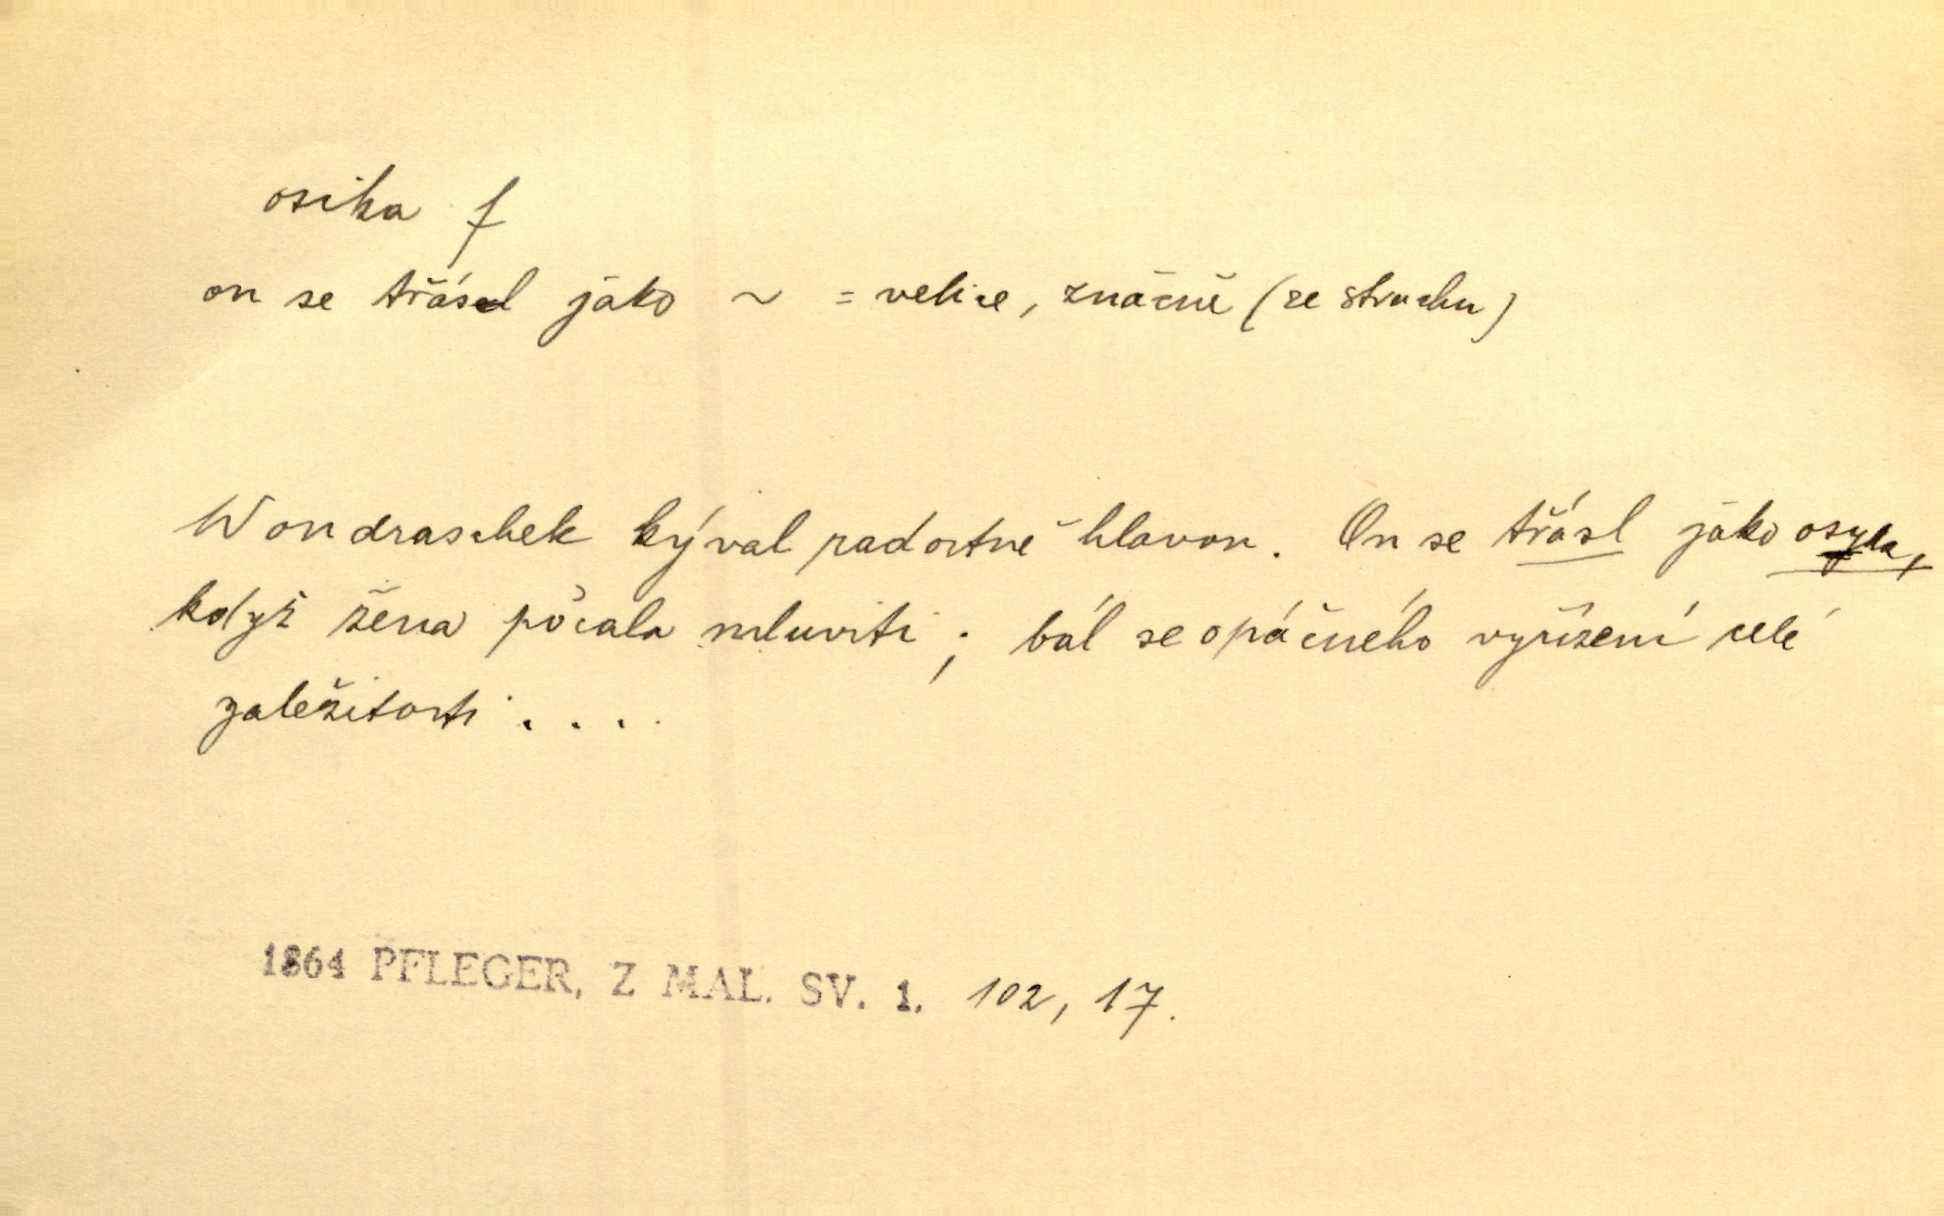 osika f
on se třásl jako ~ = velice, značně (ze strachu)
Wondraschek kýval radostně hlavou. On se třásl jako osyka,
když žena počala mluviti; bál se opáčného vyřízení celé
záležitosti ....
1864 PFLEGER, Z MAL. SV. 1. 102, 17.